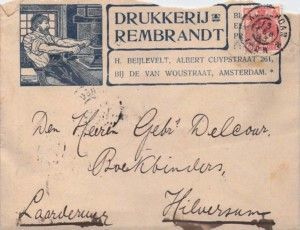 DRUKKERIJ
REMBRANDT
H. BEIJLEVELT, ALBERT CUYPSTRAAT 261,
BIJ DE VAN WOUSTRAAT, AMSTERDAM.
Den Heeren Gebrs Delcour,
Boekbinders,
Laarderweg Hilversum